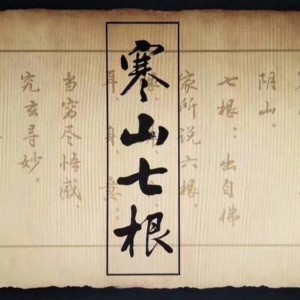 寒山七根
阴山。
七根：出自佛
家所说六根，
当穷尽悟感，
究玄寻妙，